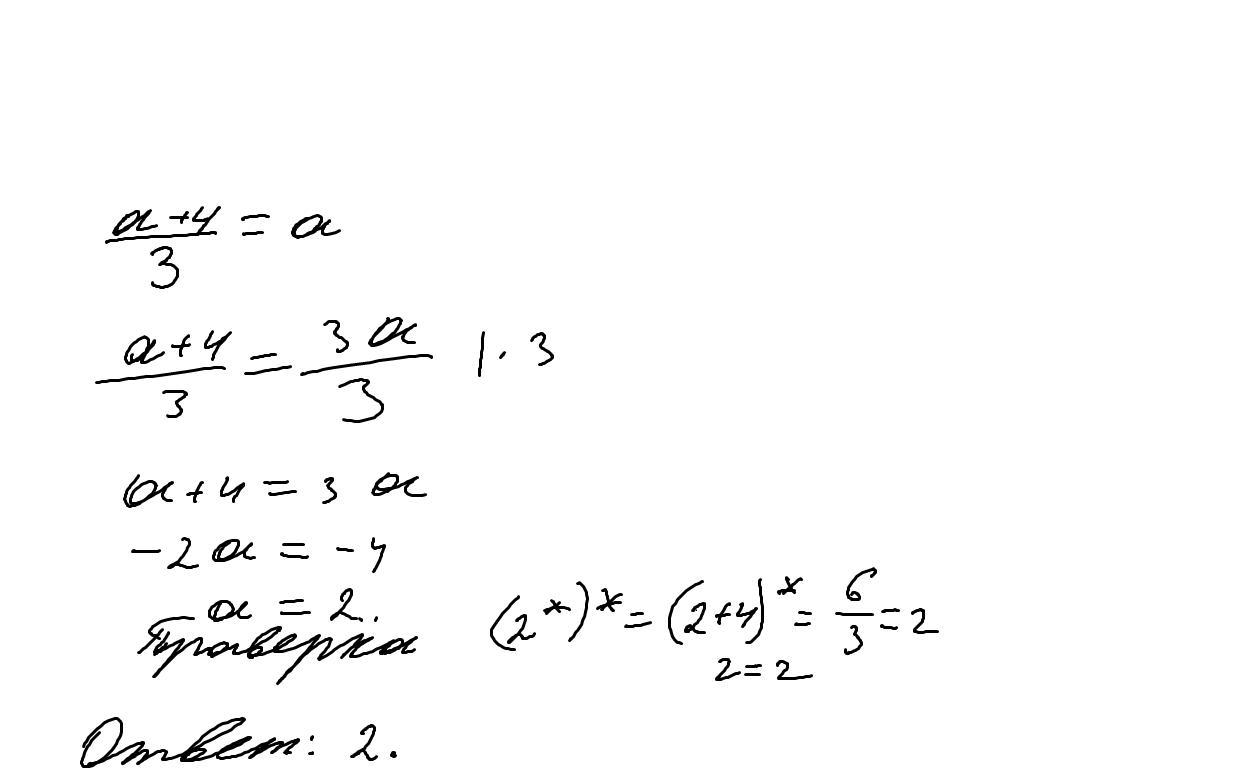 a+4/3 = a
a+4/3 = 3a/3 | · 3
a+4 = 3 a
-2a = -4
a = 2.
Проверка (2*)* = (2+4)* = 6/3 = 2
2 = 2
Ответ: 2.